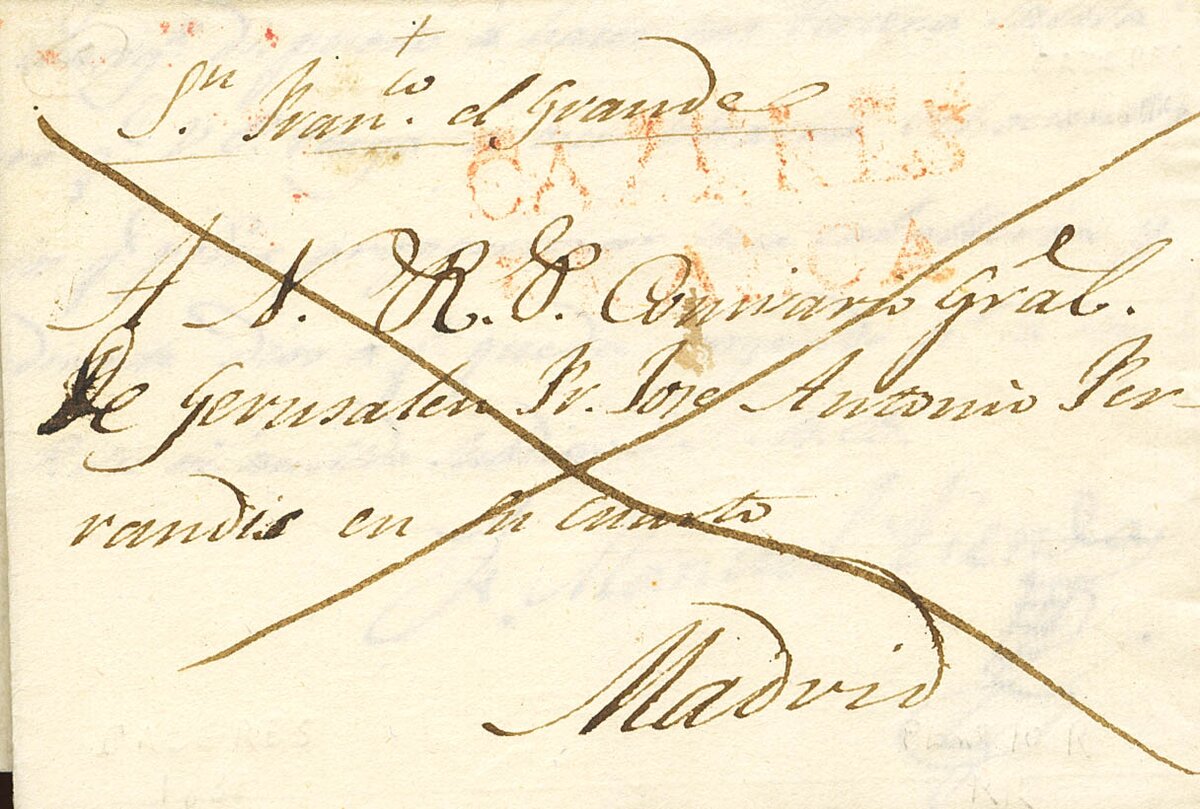 +
Sn. Franco. el Grande
CAZERES
FRANCA
A N. R. P. Comisario Gral.
De Gerusalen Fr. Jose Antonio Fer-
randis en su cuarto
Madrid